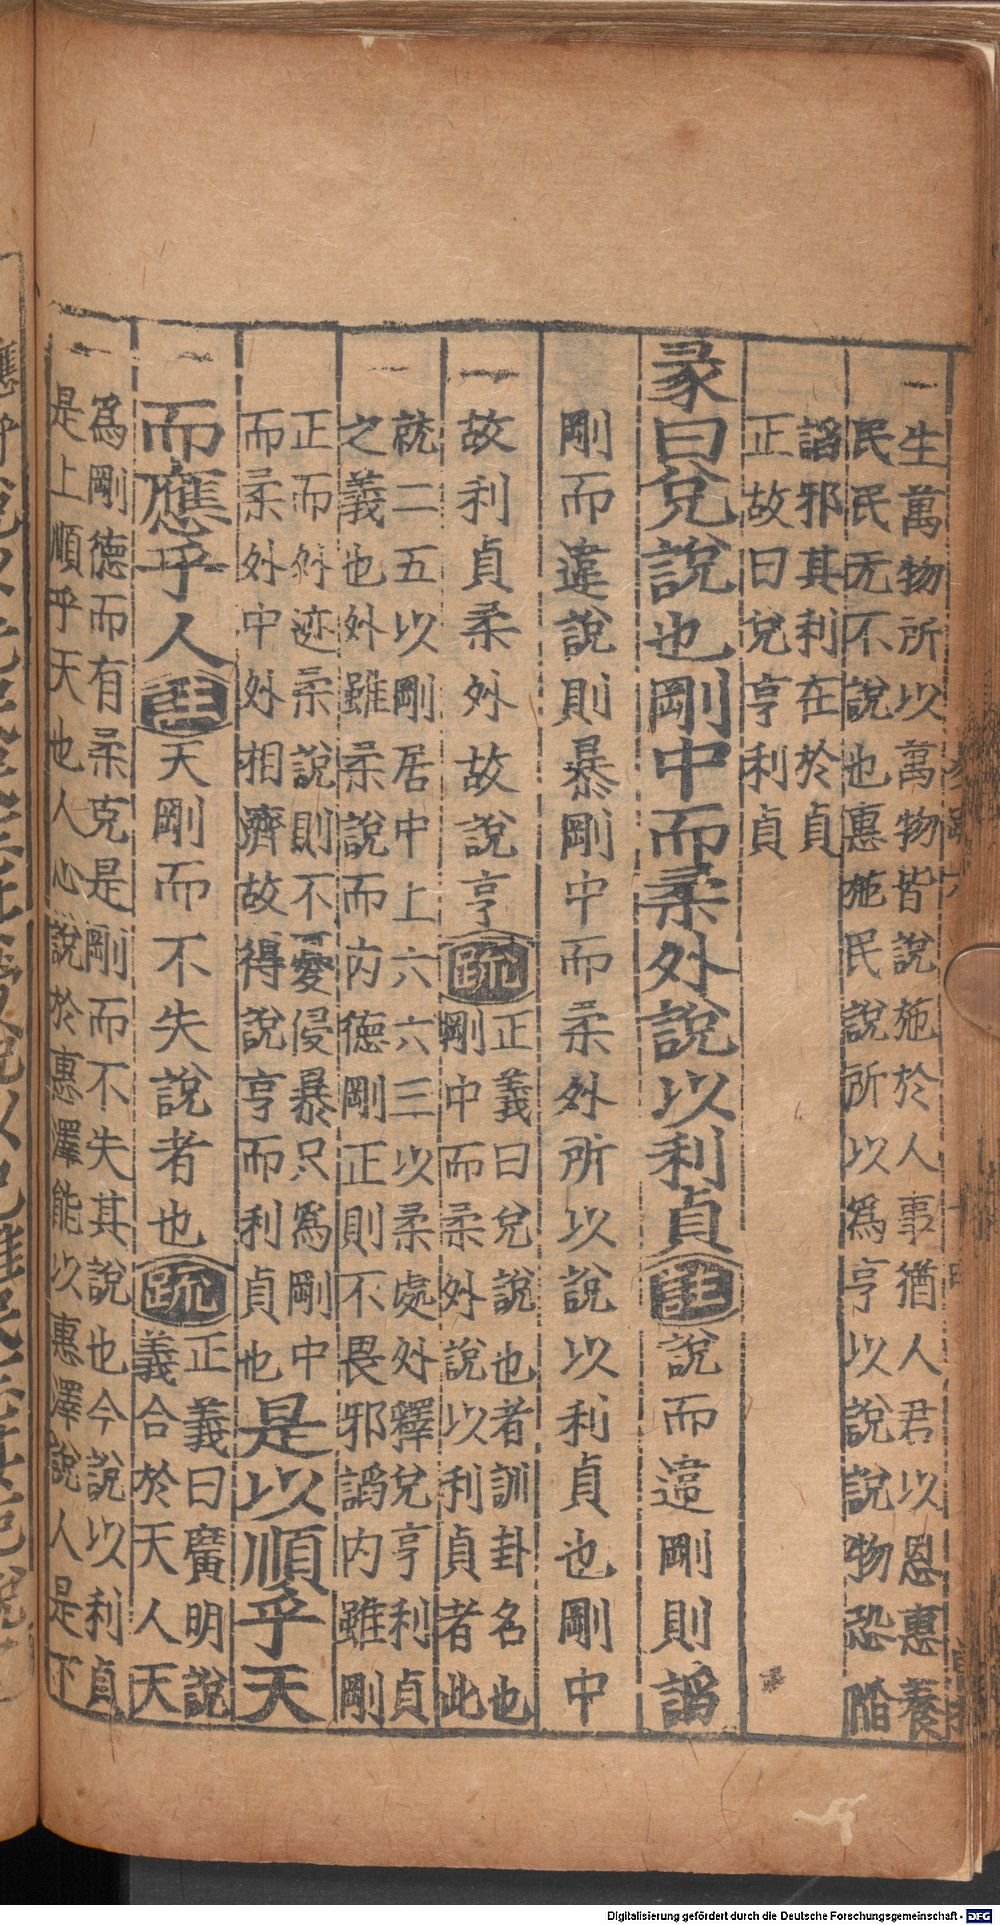 生萬物所以萬物皆說施於人事猶人君以恩惠養
民民无不說也惠施民說所以爲亨以說說物恐陷
謟邪其利在於貞
正故曰兌亨利貞
彖曰兌說也剛中而柔外說以利貞註說而違剛則謟
剛而違說則暴剛中而柔外所以說以利貞也剛中
故利貞柔外故說亨疏正義曰兌說也者訓卦名也
剛中而柔外說以利貞者此
就二五以剛居中上六六三以柔處外釋兌亨利貞
之義也外雖柔說而內德剛正則不畏邪謟內雖剛
正而外迹柔說則不憂侵暴只爲剛中
而柔外中外相濟故得說亨而利貞也是以順乎天
而應乎人註天剛而不失說者也疏正義曰廣明說
義合於天人天
爲剛德而有柔克是剛而不失其說也今說以利貞
是上順乎天也人心說於惠澤能以惠澤說人是下
Digitalisierung gefördert durch die Deutsche Forschungsgemeinschaft - DFG